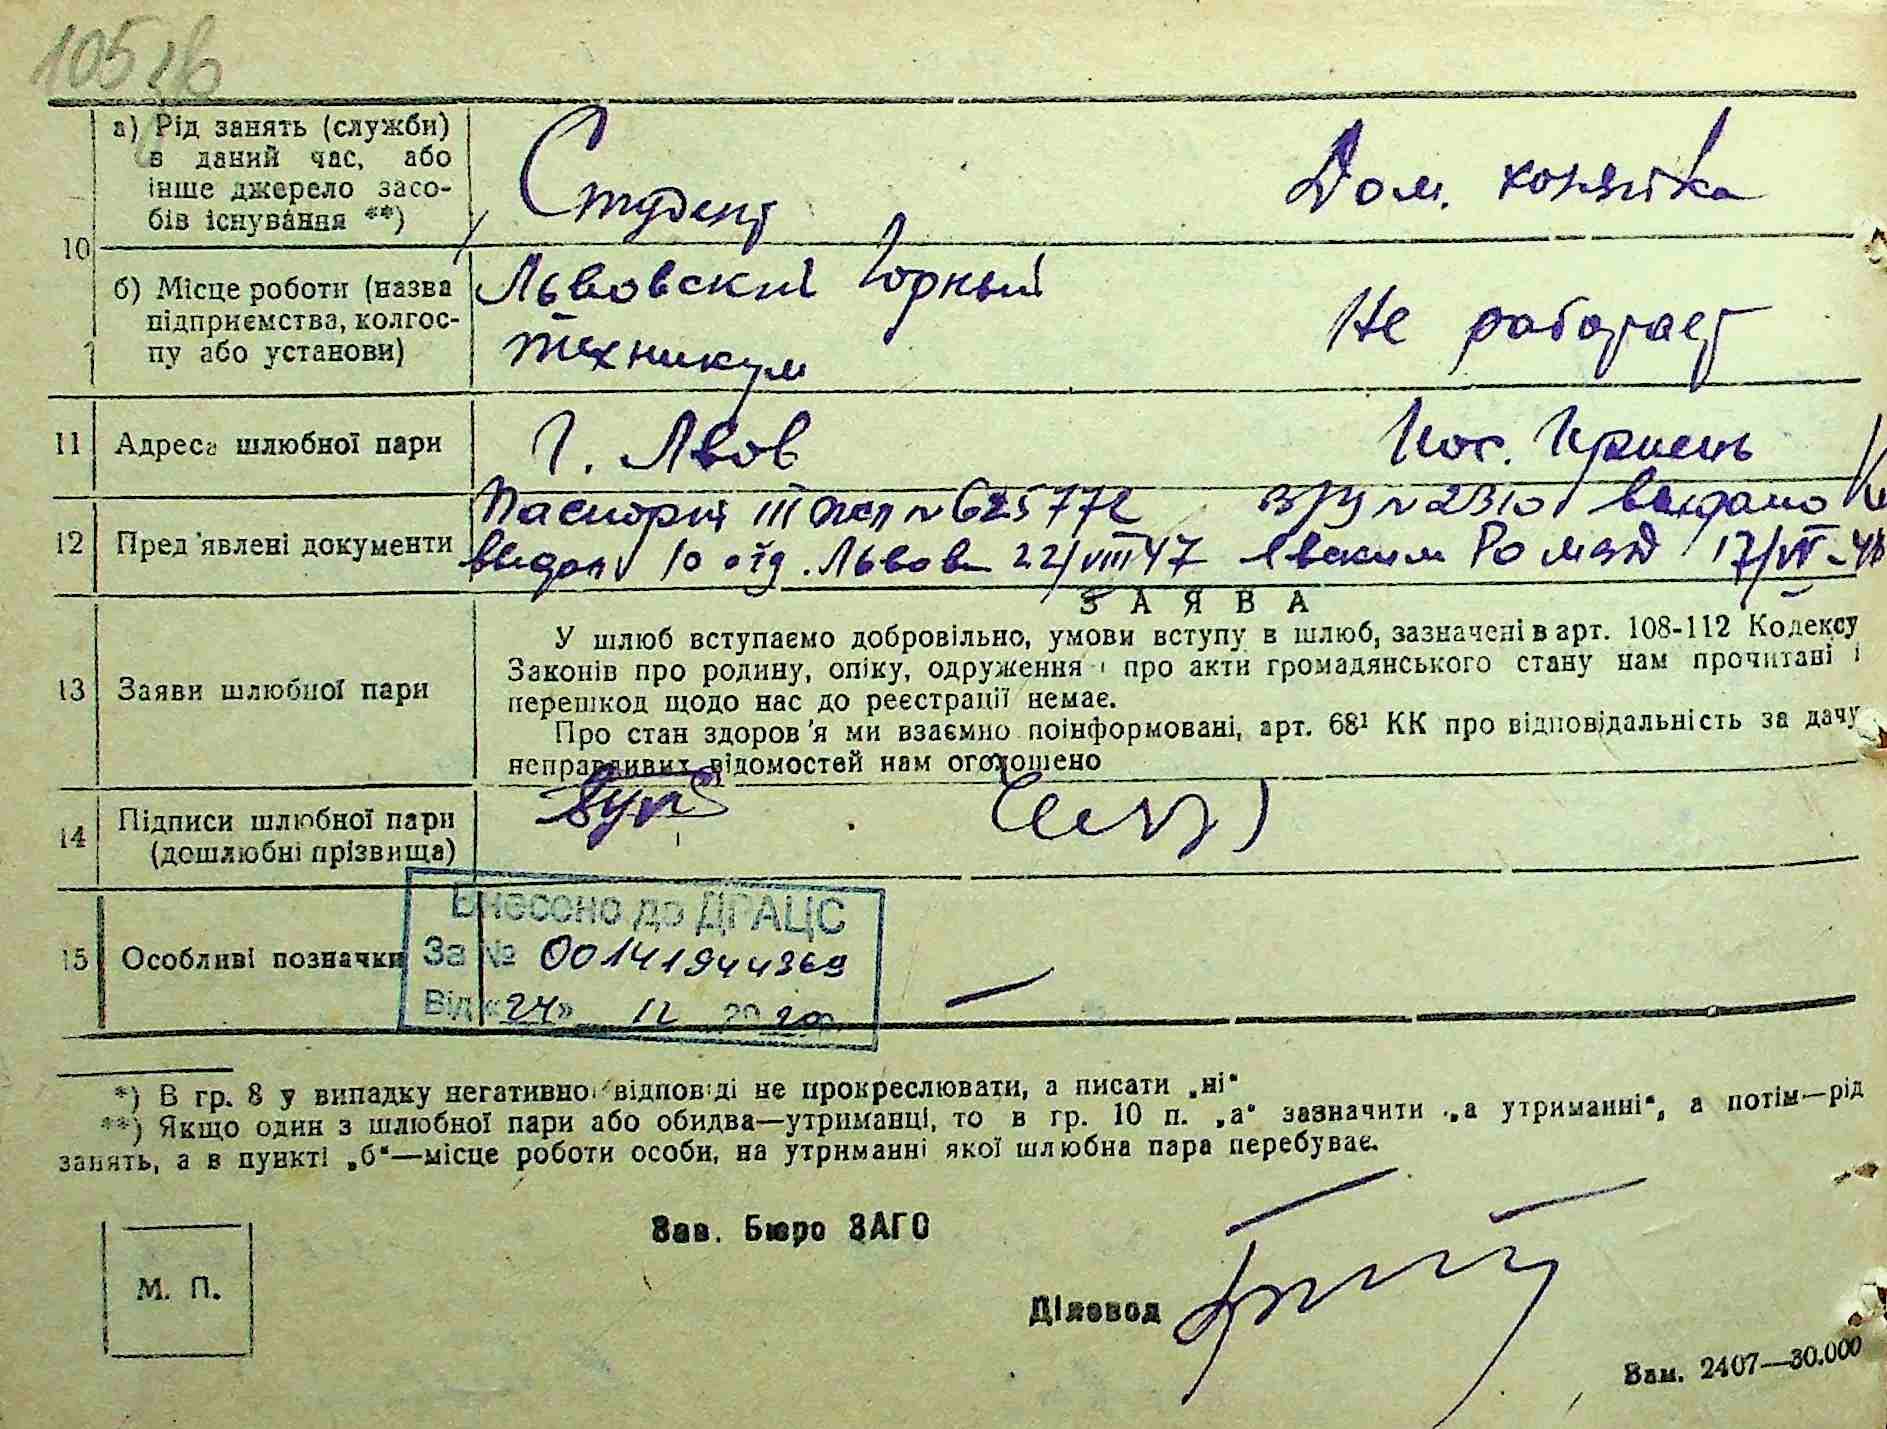 105 зв
а) Рід занять (служби)
в даний час, або
інше джерело засо-
бів існування **)
Студент
Дом. хоняйка
10
б) Місце роботи (назва
підприємства, колгос-
пу або установи)
Львовский Горный
техникум
Не работает
11 Адреса шлюбної пари
г. Львов
Пос.
12 Пред'явлені документи
Паспорт III № 625772
выдан 10 отд. Львова 22/VIII 47
№ 2310 выдано
17/VII-48
13 Заяви шлюбної пари
ЗАЯВА
У шлюб вступаємо добровільно, умови вступу в шлюб, зазначені в арт. 108-112 Кодексу
Законів про родину, опіку, одруження і про акти громадянського стану нам прочитані і
перешкод щодо нас до реєстрації немає.
Про стан здоров'я ми взаємно поінформовані, арт. 68¹ КК про відповідальність за дачу
неправдивих відомостей нам оголошено
14 Підписи шлюбної пари
(дошлюбні прізвища)
15 Особливі позначки
Внесено до ДРАЦС
За № 00141944369
Від «24» 12 2020
*) В гр. 8 у випадку негативної відповіді не прокреслювати, а писати „ні“
**) Якщо один з шлюбної пари або обидва—утриманці, то в гр. 10 п. „а“ зазначити „а утриманні“, а потім—рід
занять, а в пункті „б“—місце роботи особи, на утриманні якої шлюбна пара перебуває.
Зав. Бюро ЗАГС
М. П.
Діловод
Зам. 2407—30.000